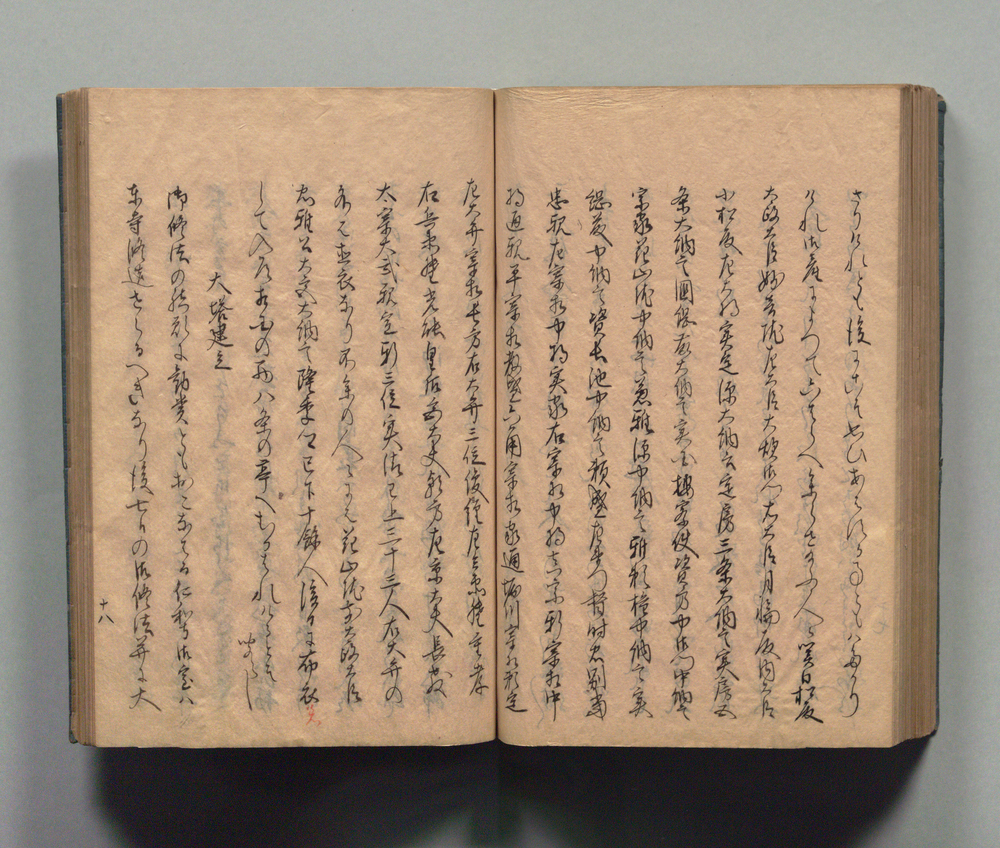 さりけれとも後にこそ
けれ御産によつて六はらへ参らせ給ふ人々関白松殿
太政大臣妙音院左大臣大炊御門右大臣月輪殿内大臣
小松殿左大将実定源大納言定房三条大納言実房五
条大納言国綱藤大納言実国按察使資方中御門中納言
宗家花山院中納言兼雅源中納言雅頼権中納言実
綱藤中納言資長池中納言頼盛左衛門督時忠別当
忠親左宰相中将実家右宰相中将実宗新宰相中
将通親平宰相教盛六角宰相家通堀川宰相頼定
左大弁宰相長方右大弁三位俊経左兵衛督重孝
右兵衛督光能皇后宮大夫朝方左京大夫長教
太宰大弐親定新三位実清已上三十三人右大弁の
外は直衣なり不参の人々には花山院前太政大臣
忠雅公大宮大納言隆季卿已下十余人後日に布衣
して入道相国の西八条の亭へむかはれけるとそ
聞えし
大塔建立
御修法の結願に勧賞ともおこなはる仁和寺御室ハ
東寺修造せらるへきなり後七日の御修法并に大
十八